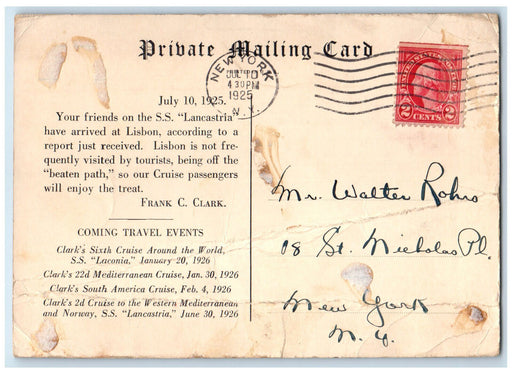 Private Mailing Card
NEW YORK
JUL 10
4 30 PM
1925
N.Y.
UNITED STATES POSTAGE
2 2
CENTS
July 10, 1925.
Your friends on the S.S. "Lancastria"
have arrived at Lisbon, according to a
report just received. Lisbon is not fre-
quently visited by tourists, being off the
"beaten path," so our Cruise passengers
will enjoy the treat.
FRANK C. CLARK.
COMING TRAVEL EVENTS
Clark's Sixth Cruise Around the World,
S.S. "Laconia," January 20, 1926
Clark's 22d Mediterranean Cruise, Jan. 30, 1926
Clark's South America Cruise, Feb. 4, 1926
Clark's 2d Cruise to the Western Mediterranean
and Norway, S.S. "Lancastria," June 30, 1926
Mr. Walter Rohrs
08 St. Nicholas Pl.
New York
N.Y.